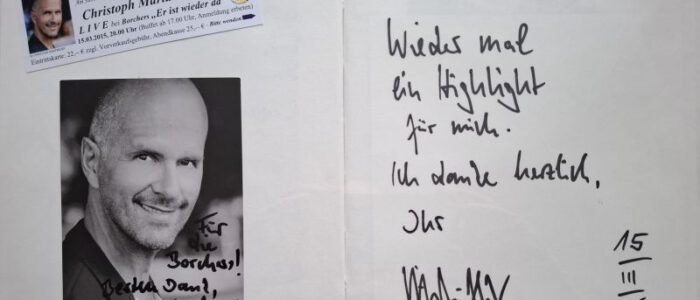 Christoph Maria
LIVE bei Borchers „Er ist wieder da“
15.03.2015, 20.00 Uhr (Buffet ab 17.00 Uhr, Anmeldung erbeten)
Eintrittskarte: 22,– € zzgl. Vorverkaufsgebühr, Abendkasse 25,– € - Bitte wenden
Für
die
Borchers!
Besten Dank,
Wieder mal
ein Highlight
für mich.
Ich danke herzlich,
Ihr
15
III